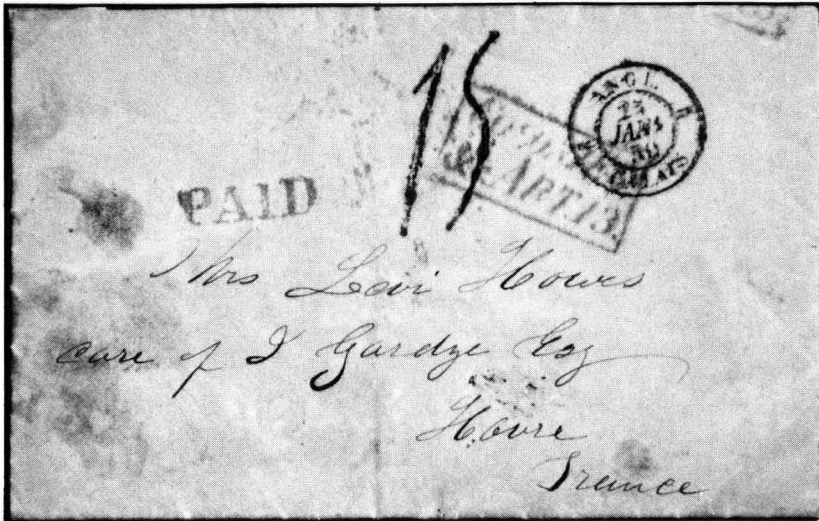 15
ANGL.
23
JANV
50
CALAIS
& ART.13.
PAID
Mrs Levi Howes
care of I Gardze Esq
Havre
France